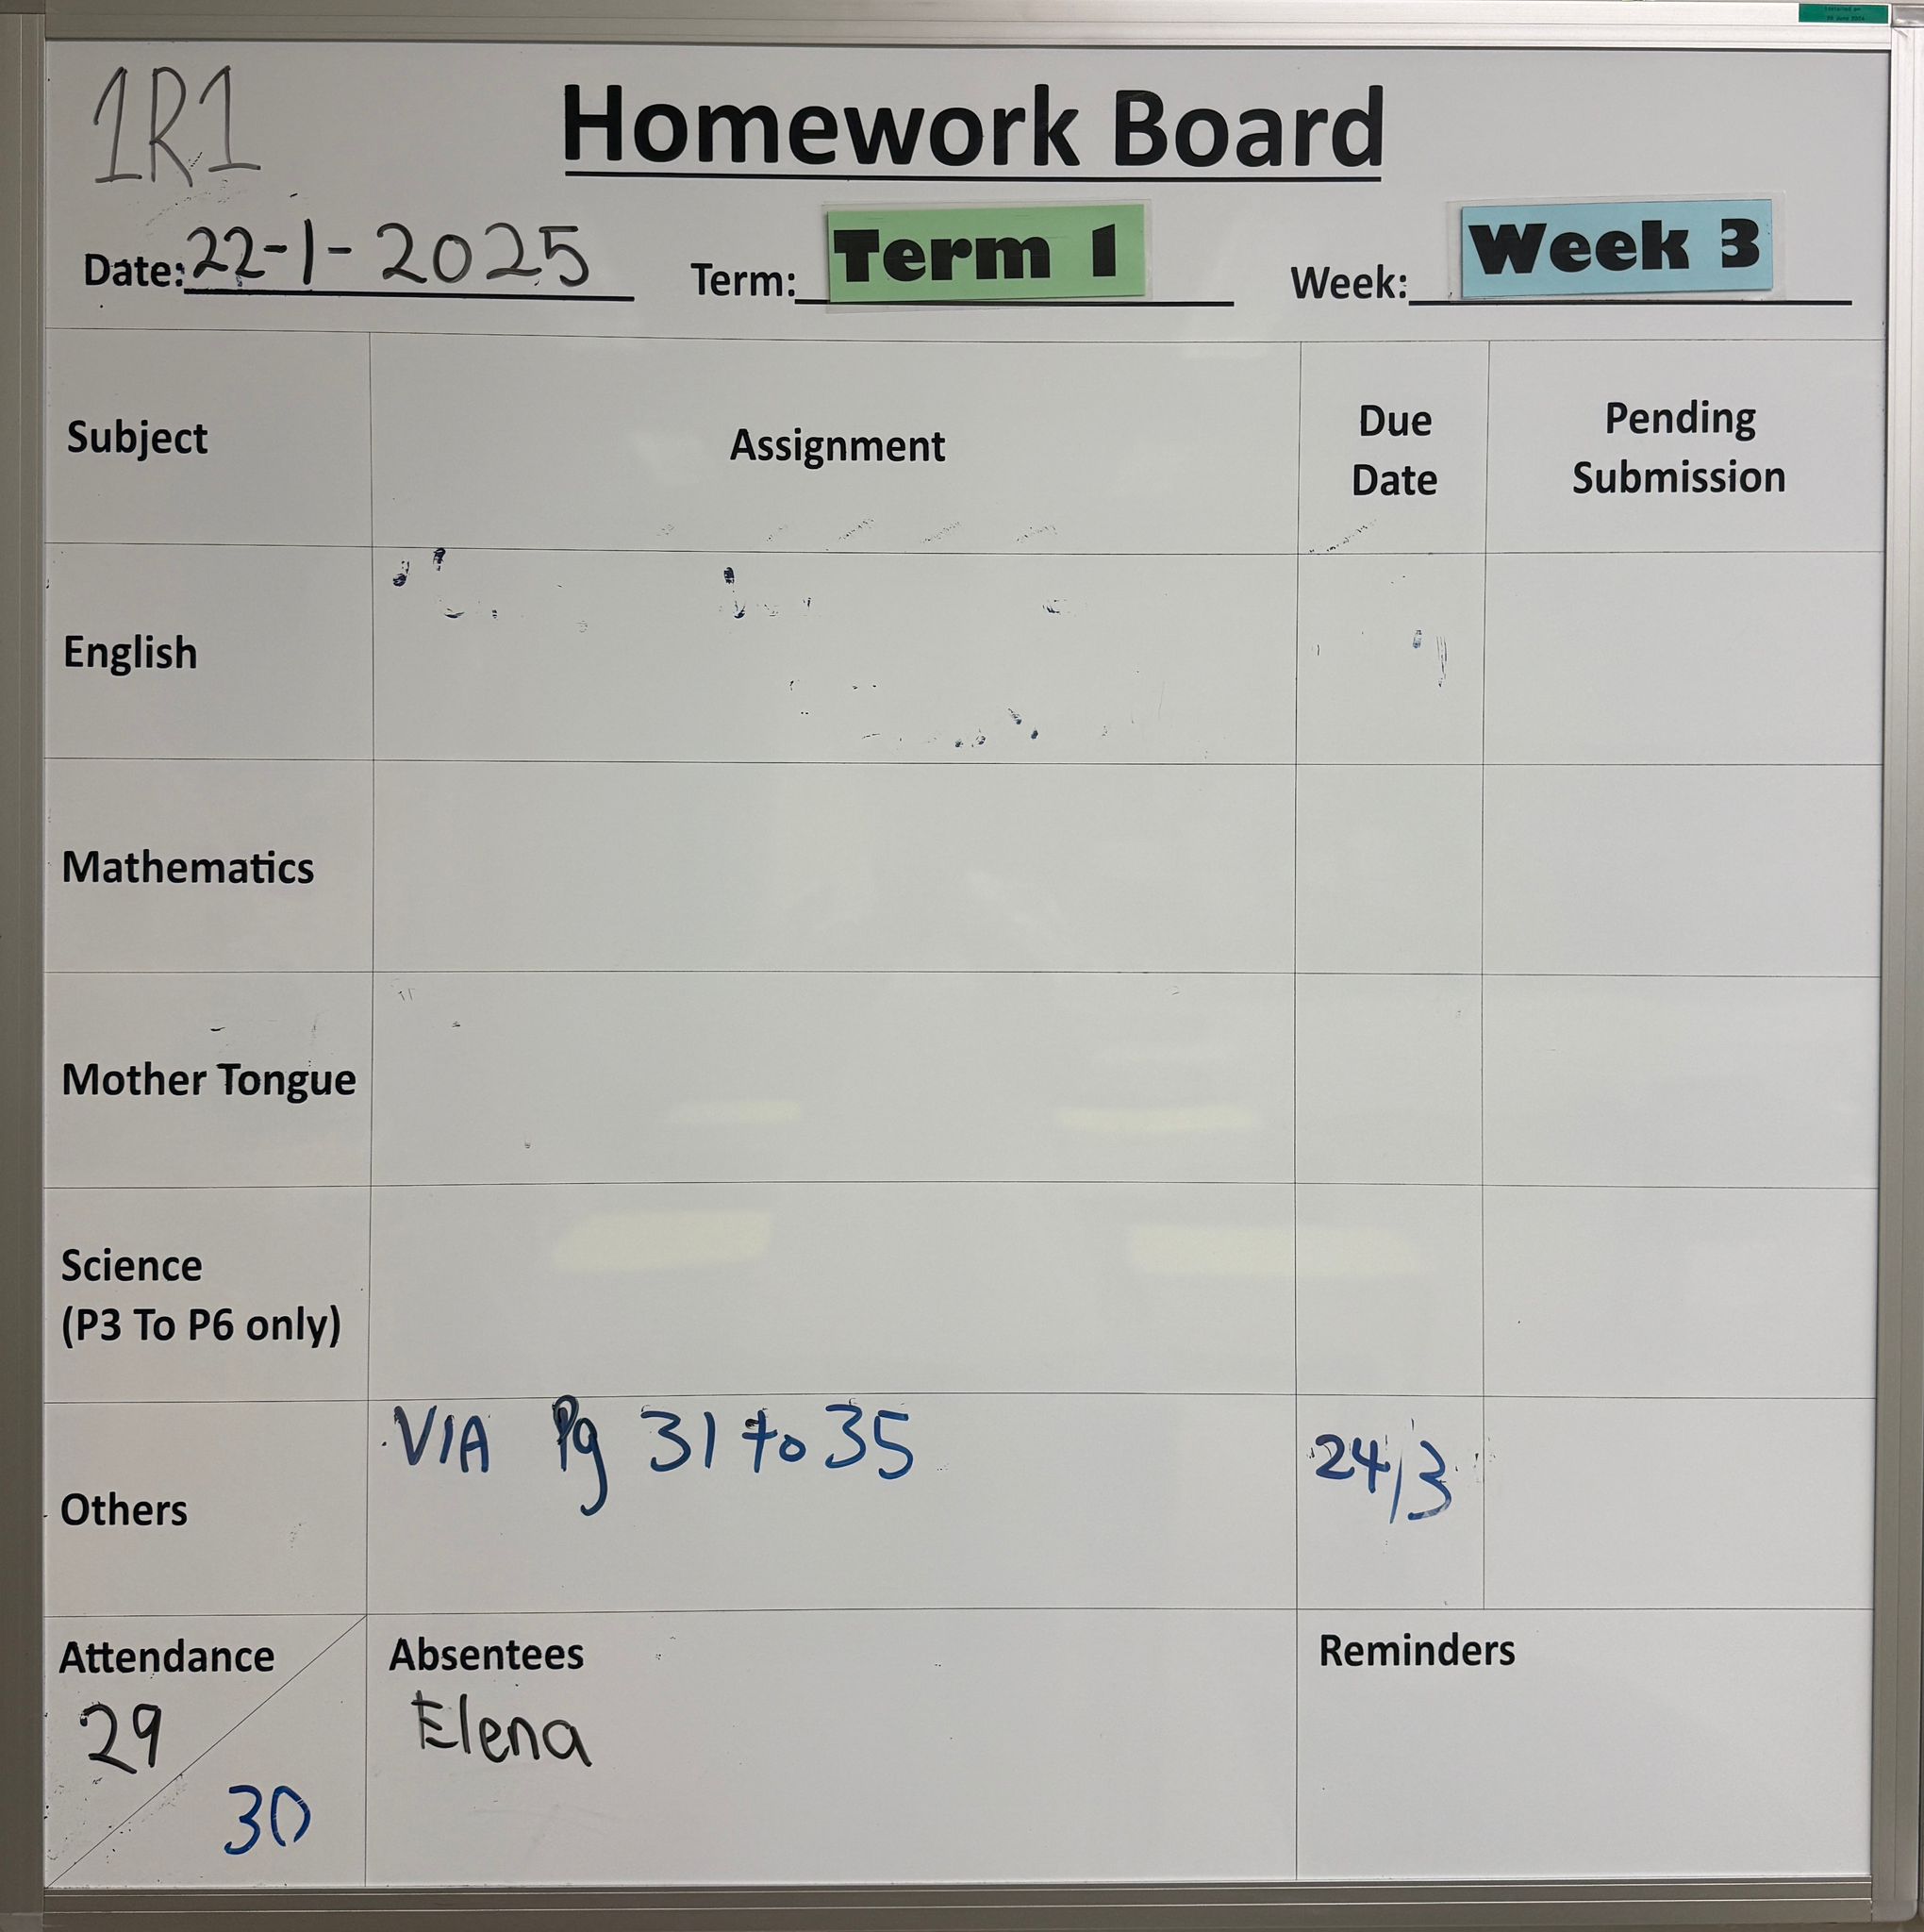 1R1
Homework Board
Date: 22-1-2025 Term: Term 1 Week: Week 3
Subject Assignment Due Date Pending Submission
English
Mathematics
Mother Tongue
Science
(P3 To P6 only)
Others VIA Pg 31 to 35 24/3
Attendance Absentees Reminders
29 Elena
30